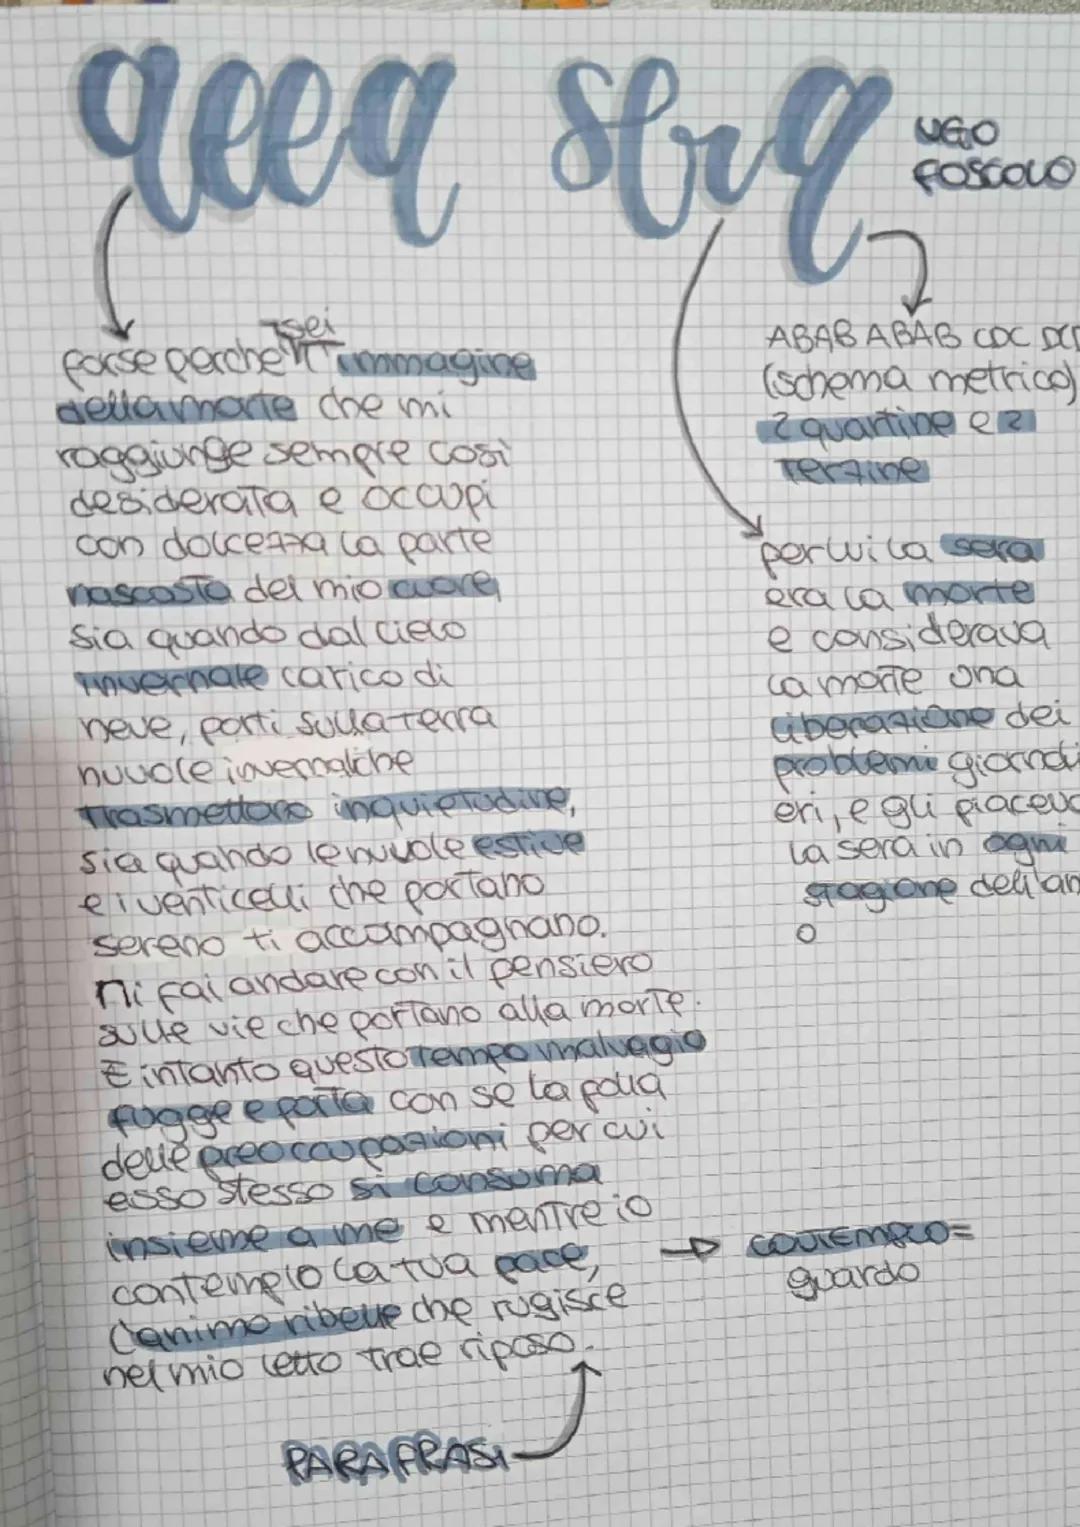 alla sera
UGO
FOSCOLO
sei
forse perche l'immagine
della morte che mi
raggiunge sempre così
desiderata e occupi
con dolcezza la parte
nascosta del mio cuore
sia quando dal cielo
invernale carico di
neve, porti sulla terra
nuvole invernali che
trasmettono inquietudine,
sia quando le nuvole estive
e i venticelli che portano
sereno ti accompagnano.
Mi fai andare con il pensiero
sulle vie che portano alla morte.
E intanto questo tempo malvagio
fugge e porta con se la folla
delle preoccupazioni per cui
esso stesso si consuma
insieme a me e mentre io
contemplo la tua pace,
l'animo ribelle che rugisce
nel mio letto trae riposo.
PARAFRASI
ABAB ABAB CDC DCD
(schema metrico)
2 quartine e 2
terzine
per lui la sera
era la morte
e considerava
la morte una
liberazione dei
problemi giornali
eri, e gli piaceva
la sera in ogni
stagione dell'an
o
CONTEMPLO=
guardo